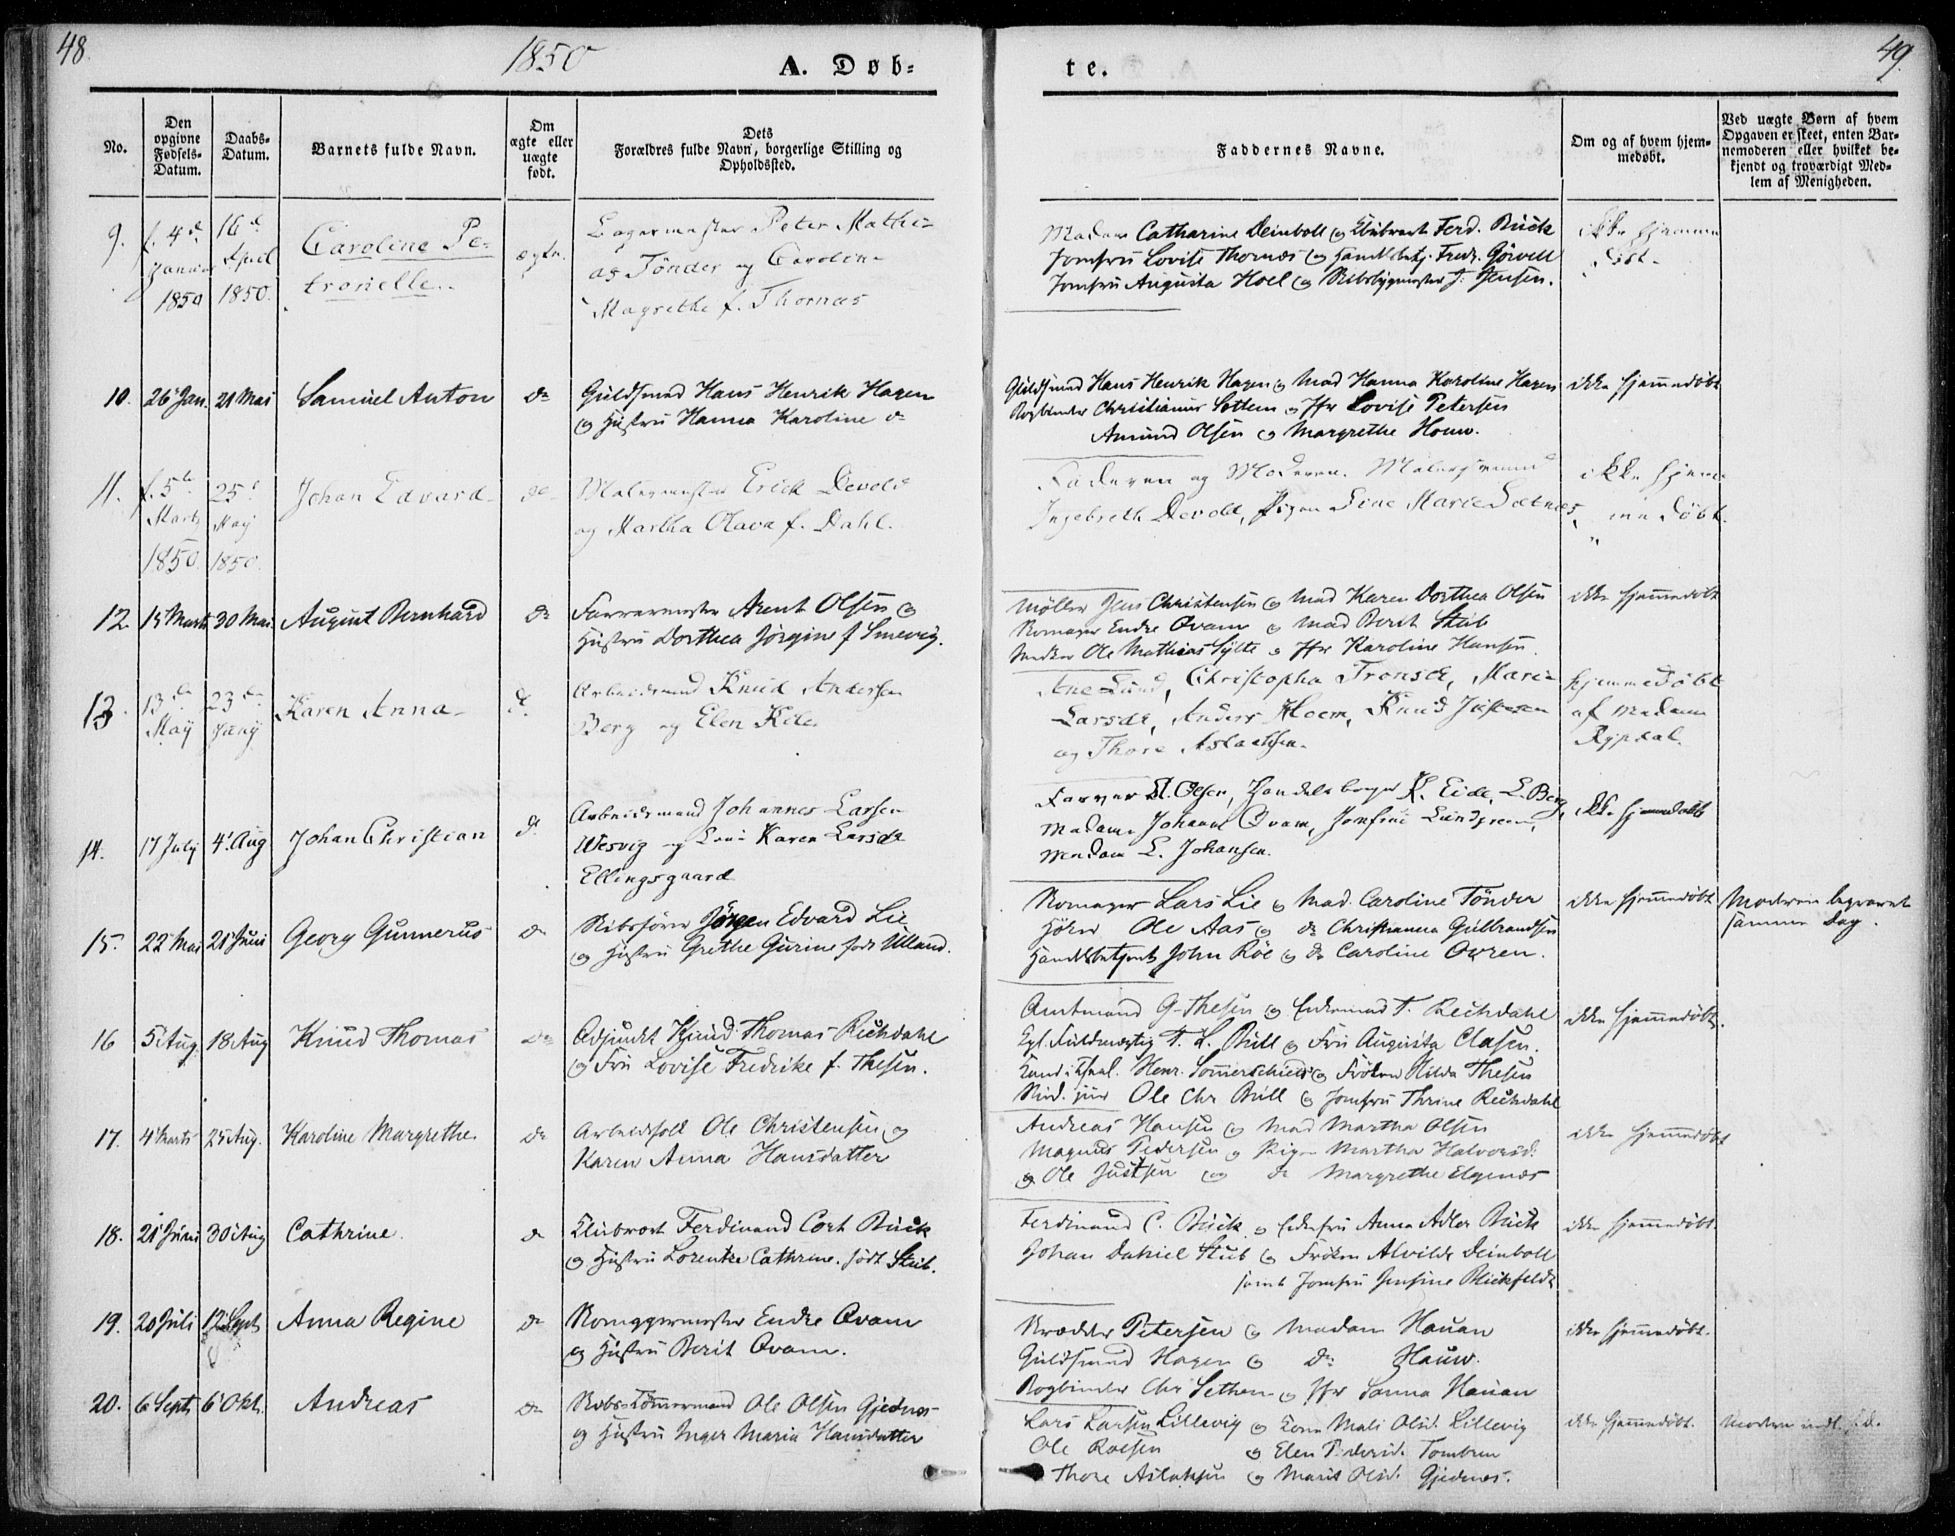 48.
1850
A. Døb-
No.
Den
opgivne
Fødsels-
Datum.
Daabs-
Datum.
Barnets fulde Navn.
Om
ægte eller
uægte
født.
Dets
Forældres fulde Navn, borgerlige Stilling og
Opholdssted.
9.
f. 4de
Januar
1850
16de
April
1850.
Caroline Pe-
tronelle.
ægte.
Peter Mathi-
as Tönder og Caroline
Magrethe f. Thornæs
10.
26 Jan.
21 Mai
Samuel Anton
do
Guldsmed Hans Henrik Hagen
og Hustru Hanna Karoline do
11.
f. 5te
Marts
1850.
25de
May
1850.
Johan Edvard
do
Malermester Erick Devold
og Martha Olava f. Dahl.
12.
15 Marts
30 Mai
August Bernhard
do
Farvermester Arent Olsen og
Hustru Dorthea Jørgine f Smevig.
13.
13de
May
23de
Juny
Karen Anna
d.
Arbeidsmand Knud Andersen
Berg og Elen
14.
17 July
4 Aug
Johan Christian
d.
Arbeidsmand Johannes Larsen
Wesvig og Karen Larsdr
Ellingsgaard
15.
22 Mai
21 Juni
Georg Gunnerus
do
Skibsfører Jørgen Edvard Lie
og Hustru Grethe Gurine født Ulland.
16
5 Aug.
18 Aug
Knud Thomas
do
Adjunkt Knud Thomas Richdahl
og Fru Lovise Fredrike f. Thesen.
17.
4 Marts
25 Aug.
Karoline Margrethe.
do
Arbeidsfolk Ole Christensen og
Karen Anna Hansdatter
18.
21 Juni
30 Aug
Cathrine.
do
Klubvert Ferdinand Cort Buck
og Hustru Lorentze Cathrine, født Stub.
19.
20 Juli
Sept
Anna Regine
do
Endre Qvam
og Hustru Berit Qvam.
20.
6 Sept
6 Okt.
Andreas
do
Skibs-Tømmermand Ole Olsen Gjednes
og Hustru Inger Maria Hansdatter
49.
te.
Faddernes Navne.
Om og af hvem hjem-
medøbt.
Ved uægte Børn af hvem
Opgaven er skeet, enten Bar-
nemoderen eller hvilket be-
kjendt og troværdigt Med-
lem af Menigheden.
Madam Catharine Deinboll og Klubvert Ferd. Buck
Jomfru Lovise Thornæs og Handl.betj. Fredr. Görvell
Jomfru Augusta Hoel og Skibsbygmester J. Jensen.
ikke hjemme
døbt.
Guldsmed Hans Henrik Hagen og Mad Hanna Karoline Hagen
Bogbinder Christianus Settem og Jfr Lovise Petersen
Amund Olsen og Margrethe Houw.
ikke hjemmedøbt
Faderen og Moderen. Malersvend
Ingebreth Devold, Pigen Line Marie Sætnes
ikke hjem-
medøbt.
Møller Jens Christensen og Mad Karen Dorthea Olsen
Endre Qvam og Mad Berit Stub
Snedker Ole Mathias Sylte og Jfr Karoline Hansen.
ikke hjemmedøbt
Ane Lund, Christopha Tronsdr, Maria
Larsdr, Anders Hoem, Knud Justesen
og Thore Aslaksen.
hjemmedøbt
af Madam
Rypdal.
Farver A. Olsen, Handelsborger K. Eide, L. Berg,
Madam Johanne Qvam, Jomfru Lundgreen,
Madam L. Johansen.
ikke hjemmedøbt
Lars Lie og Mad. Caroline Tönder
Ole Aas og do Christianna Gulbrandsen
Handelsbetjent John Röe og do Caroline Owren.
ikke hjemmedøbt
Moderen begravet
samme Dag.
Amtmand G. Thesen og Enkemad T. Richdahl
Kgl. Fuldmægtig T. L. Bull og Fru Augusta Clasen.
Henr. Somerschield og Frøken Hilda Thesen
Stud. jur Ole Chr Bull og Jomfru Thrine Richdahl
ikke hjemmedøbt.
Andreas Hansen og Mad Martha Olsen
Magnus Pedersen og Pigen Martha Halvorsd.
og Ole Justsen og do Margrethe Elgenæs
ikke hjemmedøbt
Ferdinand C. Buck og Enkefru Anna Adler Buck
Johan Daniel Stub og Frøken Alvilde Deinboll
samt Jomfru Gusine Blickfeldt
ikke hjemmedøbt.
Skrædder Petersen og Madam Hauan
Guldsmed Hagen og do Hauw.
Bogbinder Chr Sethem og Jfr Sanna Hauan
ikke hjemmedøbt.
Lars Larsen Lillevig og Kone Mali Olsd. Lillevig
Ole Roesen og Elen Pedersd. Tomhren
Thore Aslaksen og Marit Olsd. Gjednes.
ikke hjemmedøbt.
Moderen